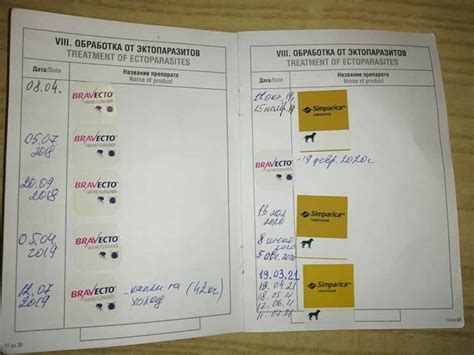 VIII. ОБРАБОТКА ОТ ЭКТОПАРАЗИТОВ
TREATMENT OF ECTOPARASITES
Дата/Date
Название препарата
Name of product
08.04.
BRAVECTO
05.07
2018
BRAVECTO
20.09
2018
BRAVECTO
05.04
2019
BRAVECTO
12.07
2019
BRAVECTO
капли на (42кг)
холку
VIII. ОБРАБОТКА ОТ ЭКТОПАРАЗИТОВ
TREATMENT OF ECTOPARASITES
Дата/Date
Название препарата
Name of product
Simparica
BRAVECTO
19 февр. 2020г
Simparica
2020
8 июня
2020
19.03.21
19.04.21
18.05.21
12.06.21
11.07.21
Simparica